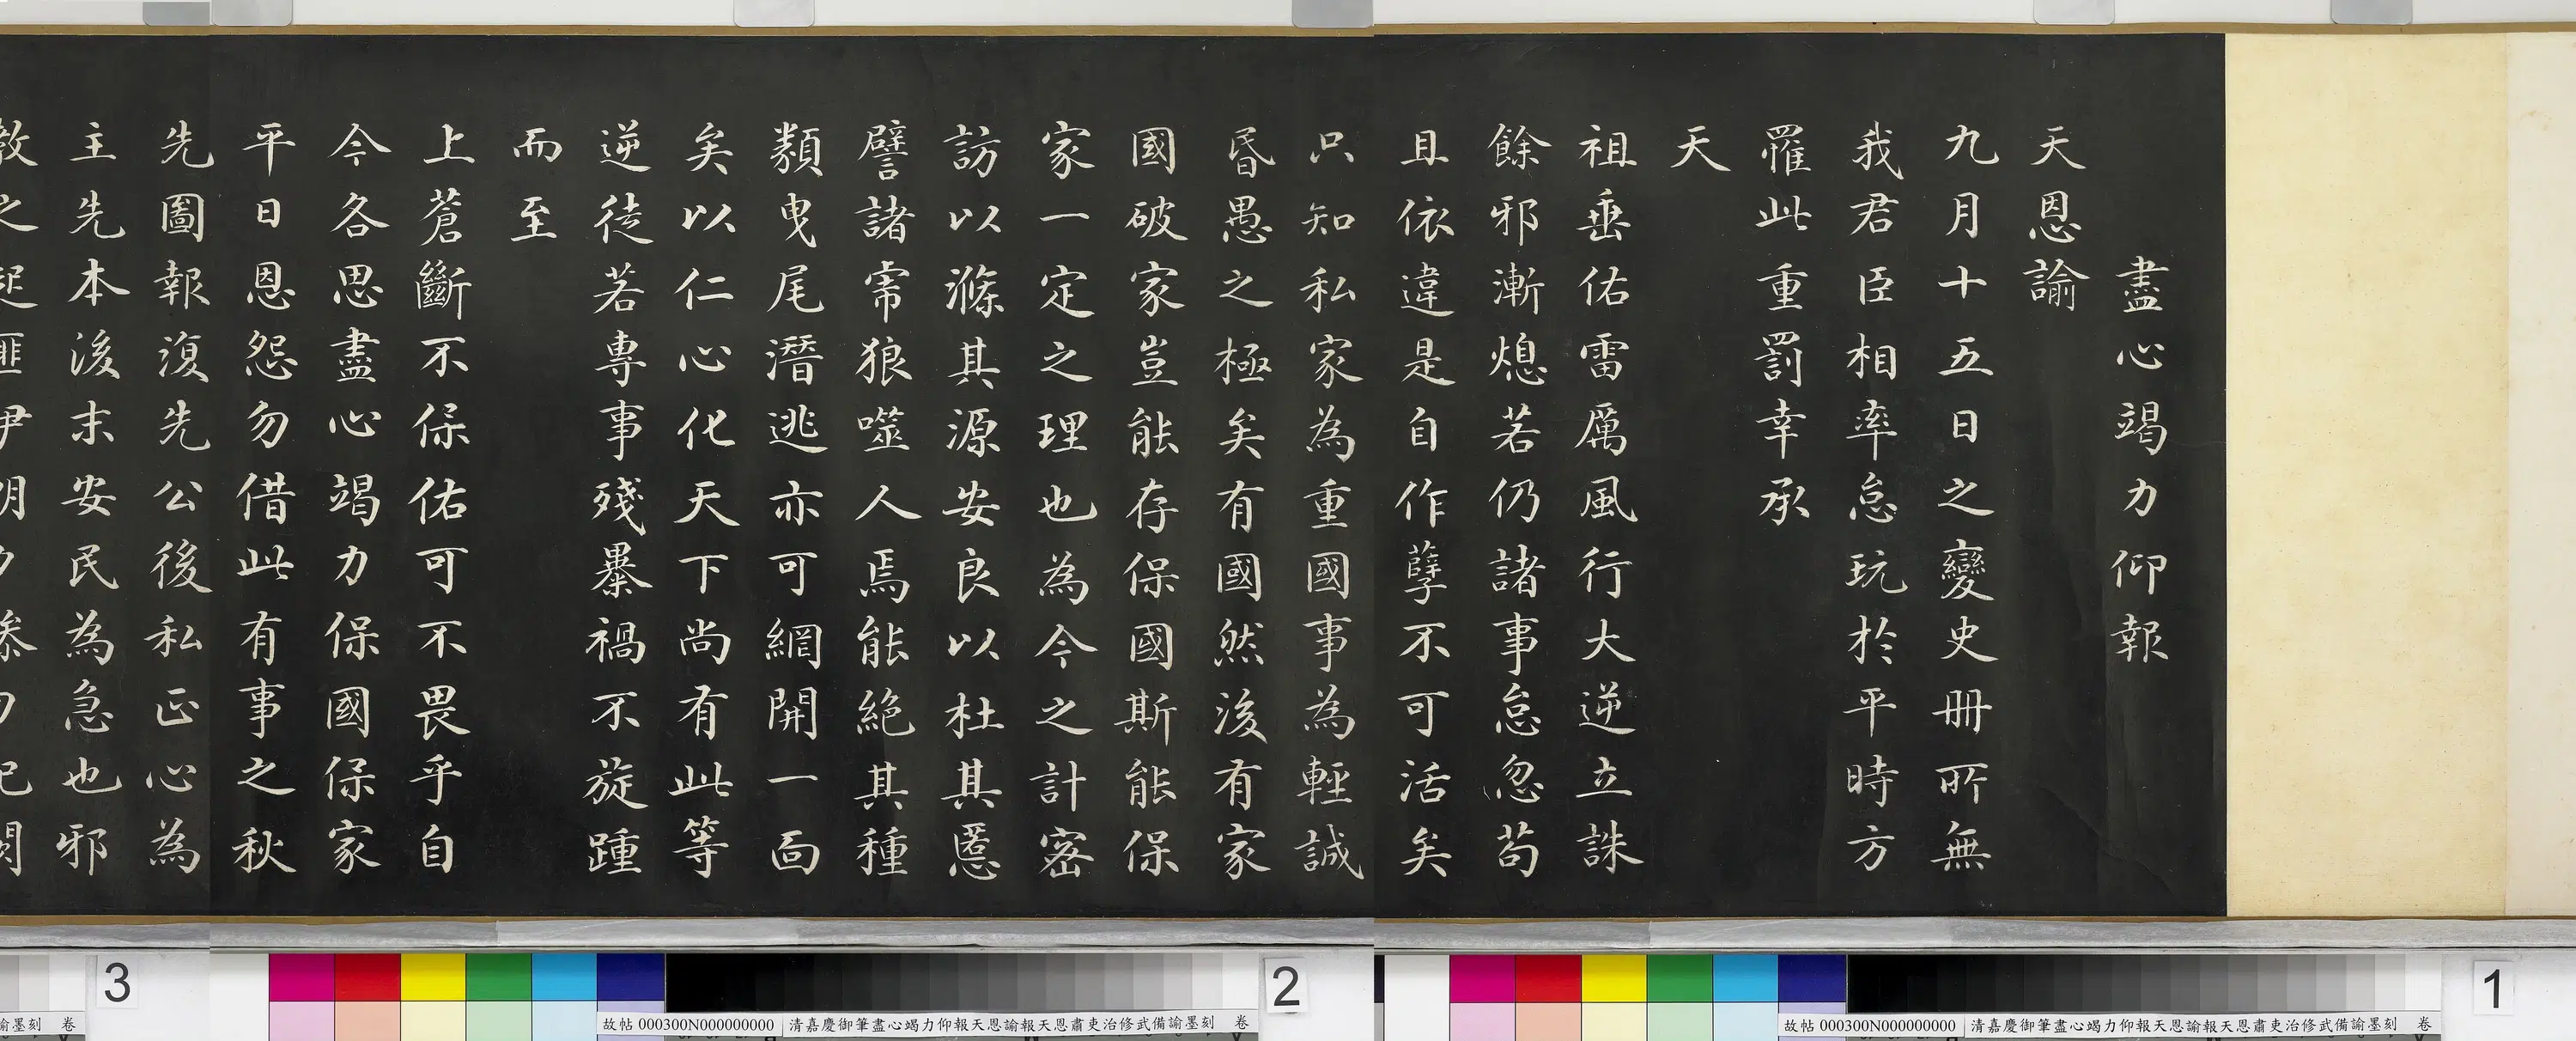 盡心竭力仰報
天恩諭
九月十五日之變史冊所無
我君臣相率怠玩於平時方
罹此重罰幸承
天
祖垂佑雷厲風行大逆立誅
餘邪漸熄若仍諸事怠忽苟
且依違是自作孽不可活矣
只知私家為重國事為輕誠
昬愚之極矣有國然後有家
國破家豈能存保國斯能保
家一定之理也為今之計密
訪以滌其源安良以杜其慝
譬諸虎狼噬人焉能絕其種
類曳尾潛逃亦可網開一面
矣以仁心化天下尚有此等
逆徒若專事殘暴禍不旋踵
而至
上蒼斷不保佑可不畏乎自
今各思盡心竭力保國保家
平日恩怨勿借此有事之秋
先圖報復先公後私正心為
主先本後末安民為急也邪
教之起匪伊朝夕
3
2
1
諭墨刻 卷
故帖 000300N000000000 清嘉慶御筆盡心竭力仰報天恩諭報天恩肅吏治修武備諭墨刻 卷
故帖 000300N000000000 清嘉慶御筆盡心竭力仰報天恩諭報天恩肅吏治修武備諭墨刻 卷